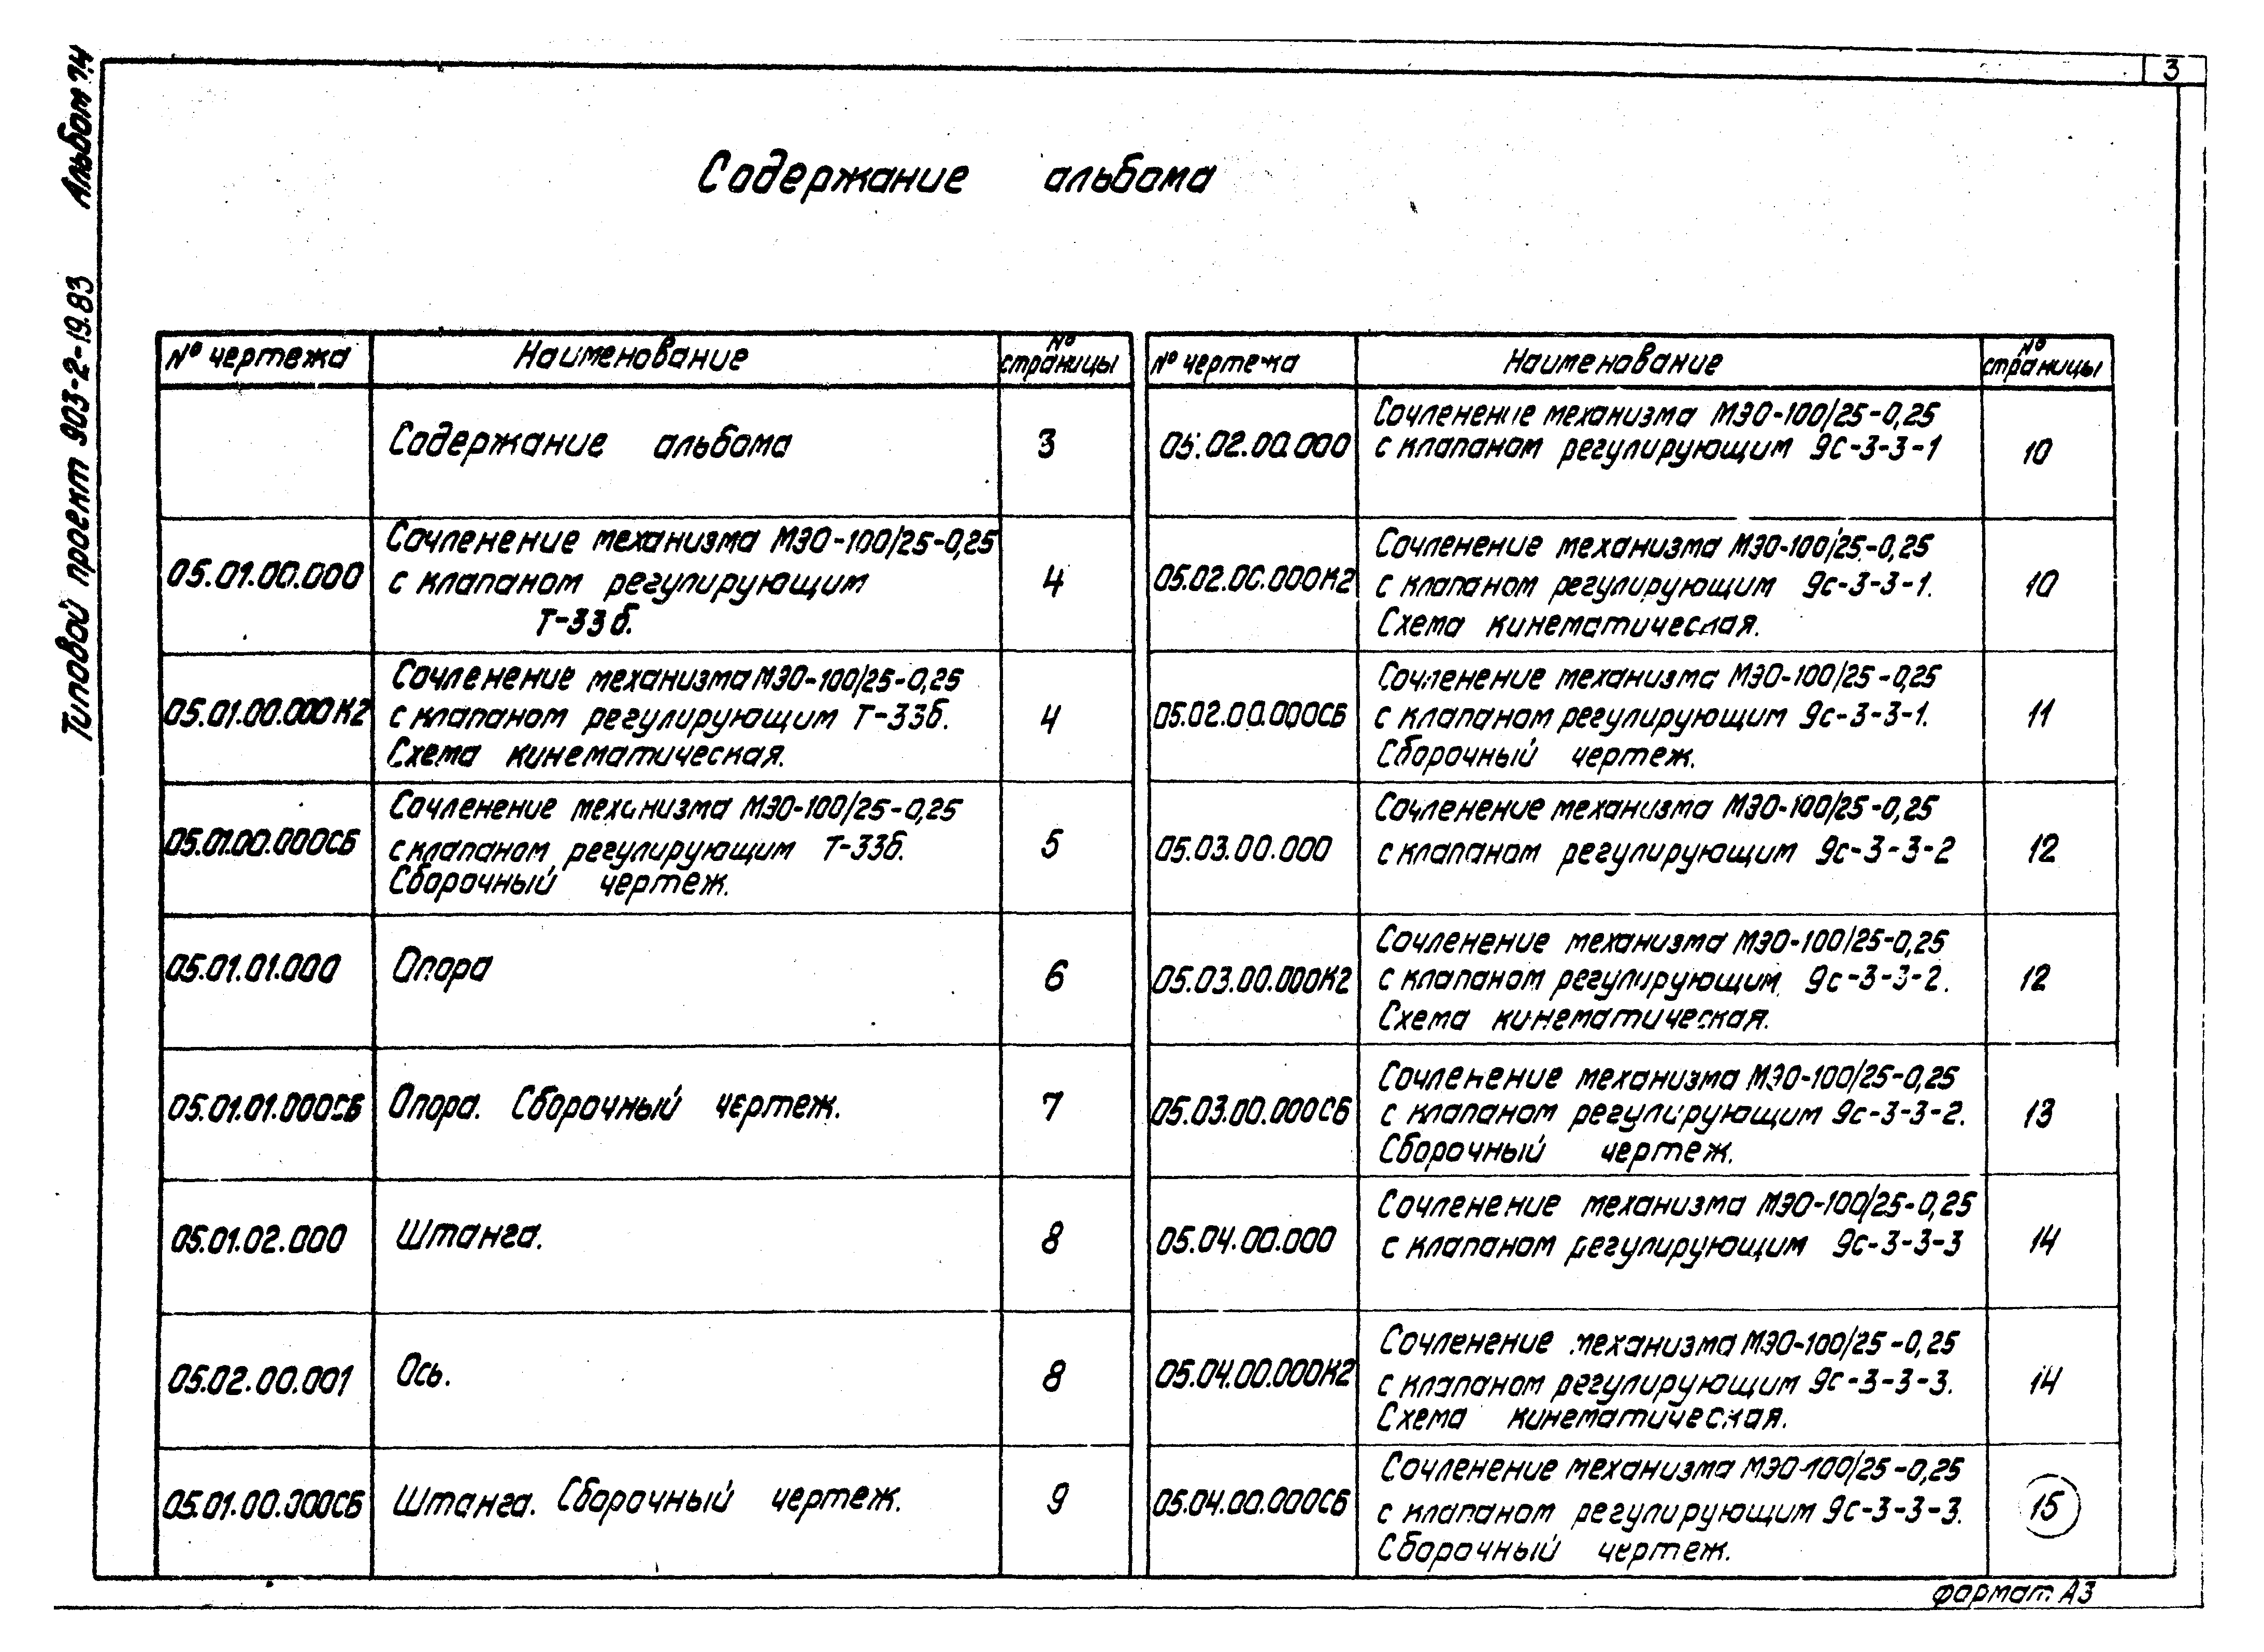 3
Типовой проект 903-2-19.83 Альбом 7.4
Содержание альбома
№ чертежа Наименование № страницы
Содержание альбома 3
05.01.00.000 Сочленение механизма МЭО-100/25-0,25
с клапаном регулирующим 4
Т-33б.
05.01.00.000К2 Сочленение механизма МЭО-100/25-0,25
с клапаном регулирующим Т-33б. 4
Схема кинематическая.
05.01.00.000СБ Сочленение механизма МЭО-100/25-0,25
с клапаном регулирующим Т-33б. 5
Сборочный чертеж.
05.01.01.000 Опора 6
05.01.01.000СБ Опора. Сборочный чертеж. 7
05.01.02.000 Штанга. 8
05.02.00.001 Ось. 8
05.01.00.000СБ Штанга. Сборочный чертеж. 9
№ чертежа Наименование № страницы
05.02.00.000 Сочленение механизма МЭО-100/25-0,25
с клапаном регулирующим 9с-3-3-1 10
05.02.00.000К2 Сочленение механизма МЭО-100/25-0,25
с клапаном регулирующим 9с-3-3-1. 10
Схема кинематическая.
05.02.00.000СБ Сочленение механизма МЭО-100/25-0,25
с клапаном регулирующим 9с-3-3-1. 11
Сборочный чертеж.
05.03.00.000 Сочленение механизма МЭО-100/25-0,25
с клапаном регулирующим 9с-3-3-2 12
05.03.00.000К2 Сочленение механизма МЭО-100/25-0,25
с клапаном регулирующим 9с-3-3-2. 12
Схема кинематическая.
05.03.00.000СБ Сочленение механизма МЭО-100/25-0,25
с клапаном регулирующим 9с-3-3-2. 13
Сборочный чертеж.
05.04.00.000 Сочленение механизма МЭО-100/25-0,25
с клапаном регулирующим 9с-3-3-3 14
05.04.00.000К2 Сочленение механизма МЭО-100/25-0,25
с клапаном регулирующим 9с-3-3-3. 14
Схема кинематическая.
05.04.00.000СБ Сочленение механизма МЭО-100/25-0,25
с клапаном регулирующим 9с-3-3-3. 15
Сборочный чертеж.
формат А3